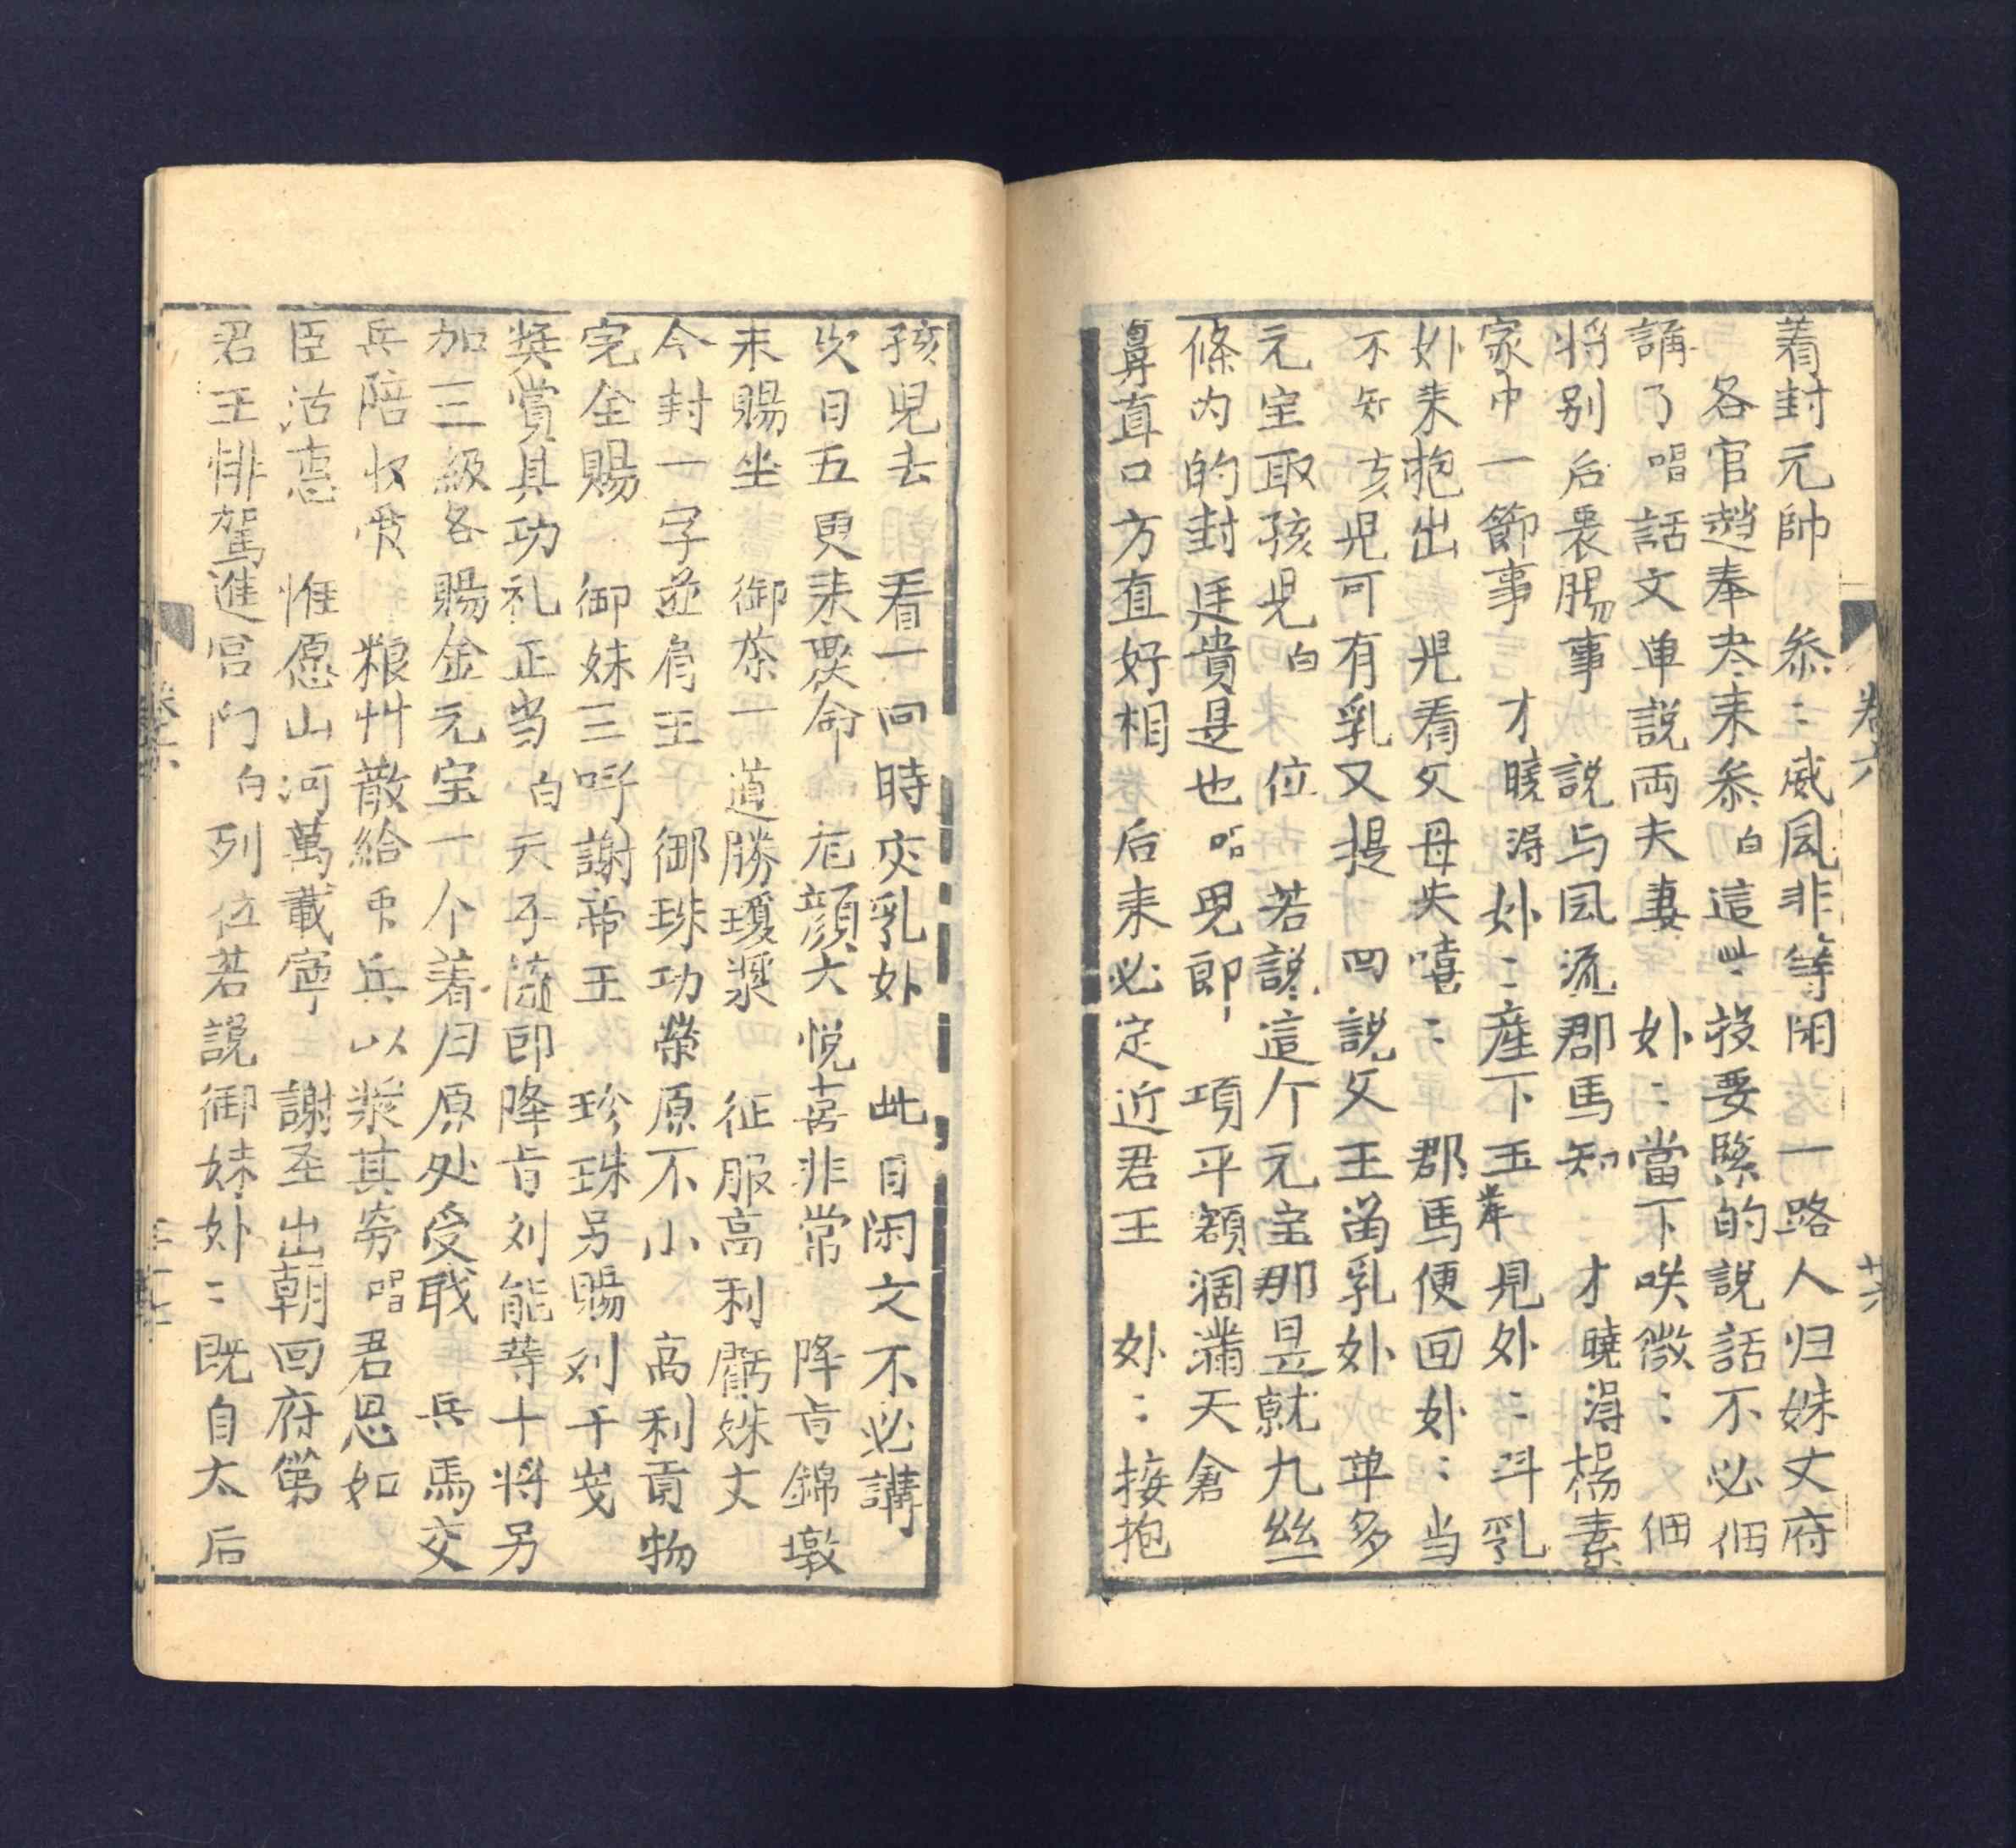 卷六 廿六
着封元帥 叅〻威風非等闲一路人归姝丈府
各官趙奉夫来叅白這些投要緊的說話不必佃
講了唱話文単說両夫妻 外〻當下咲微〻 佃
将别后衷腸事 說与风流郡馬知 才曉淂楊素
家中一節事 才曉淂外〻産下玉 見外〻斗乳
外来抱出 児看父母失嘻〻 郡馬便回外〻当
不知亥児可有乳又提 叩說父王 乳外 単多
元宝取孩児白 位 若說這个元宝那昰就九絲
條内的封廷貴是也 児郎 項平額濶滿天倉
鼻直口方直好相 后来必定近君王 外〻接抱
孩児去 看一向時夾乳外 此日闲文不必講
次日五更来 命 龙顔大悦喜非常 降旨錦墩
来賜坐 御茶一道勝瓊漿 征服高利 姝丈
今封一字並肩王 御珠功榮原不小 高利貢物
完全賜 御妹三呼謝帝王 珍珠另賜刘千岁
奨賞具功礼正当 白天子流即降旨刘能等十将另
加三級各賜金元宝一个着归原处受戝 兵馬交
兵陪收管 粮艸散給 兵以漿其劳唱君恩如
臣沾 惟愿山河萬載寧 謝圣出朝回府第
君王排駕進宫门白列位若說御妹外〻既自太后
卷六